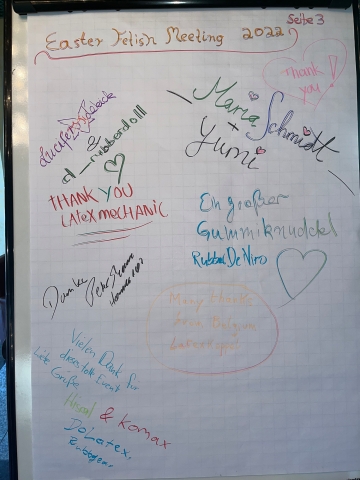 Seite 3
Easter Fetish Meeting 2022
Thank
you!
Maria Schmidt
+
Yumi
d_rubberdoll
THANK YOU
LATEXMECHANIC
Ein großer
Gummiknuddel
RubberDeNiro
Danke
Many thanks
from Belgium
Vielen Dank für
dieses tolle Event
Liebe Grüße
& Komax
DoLatex,